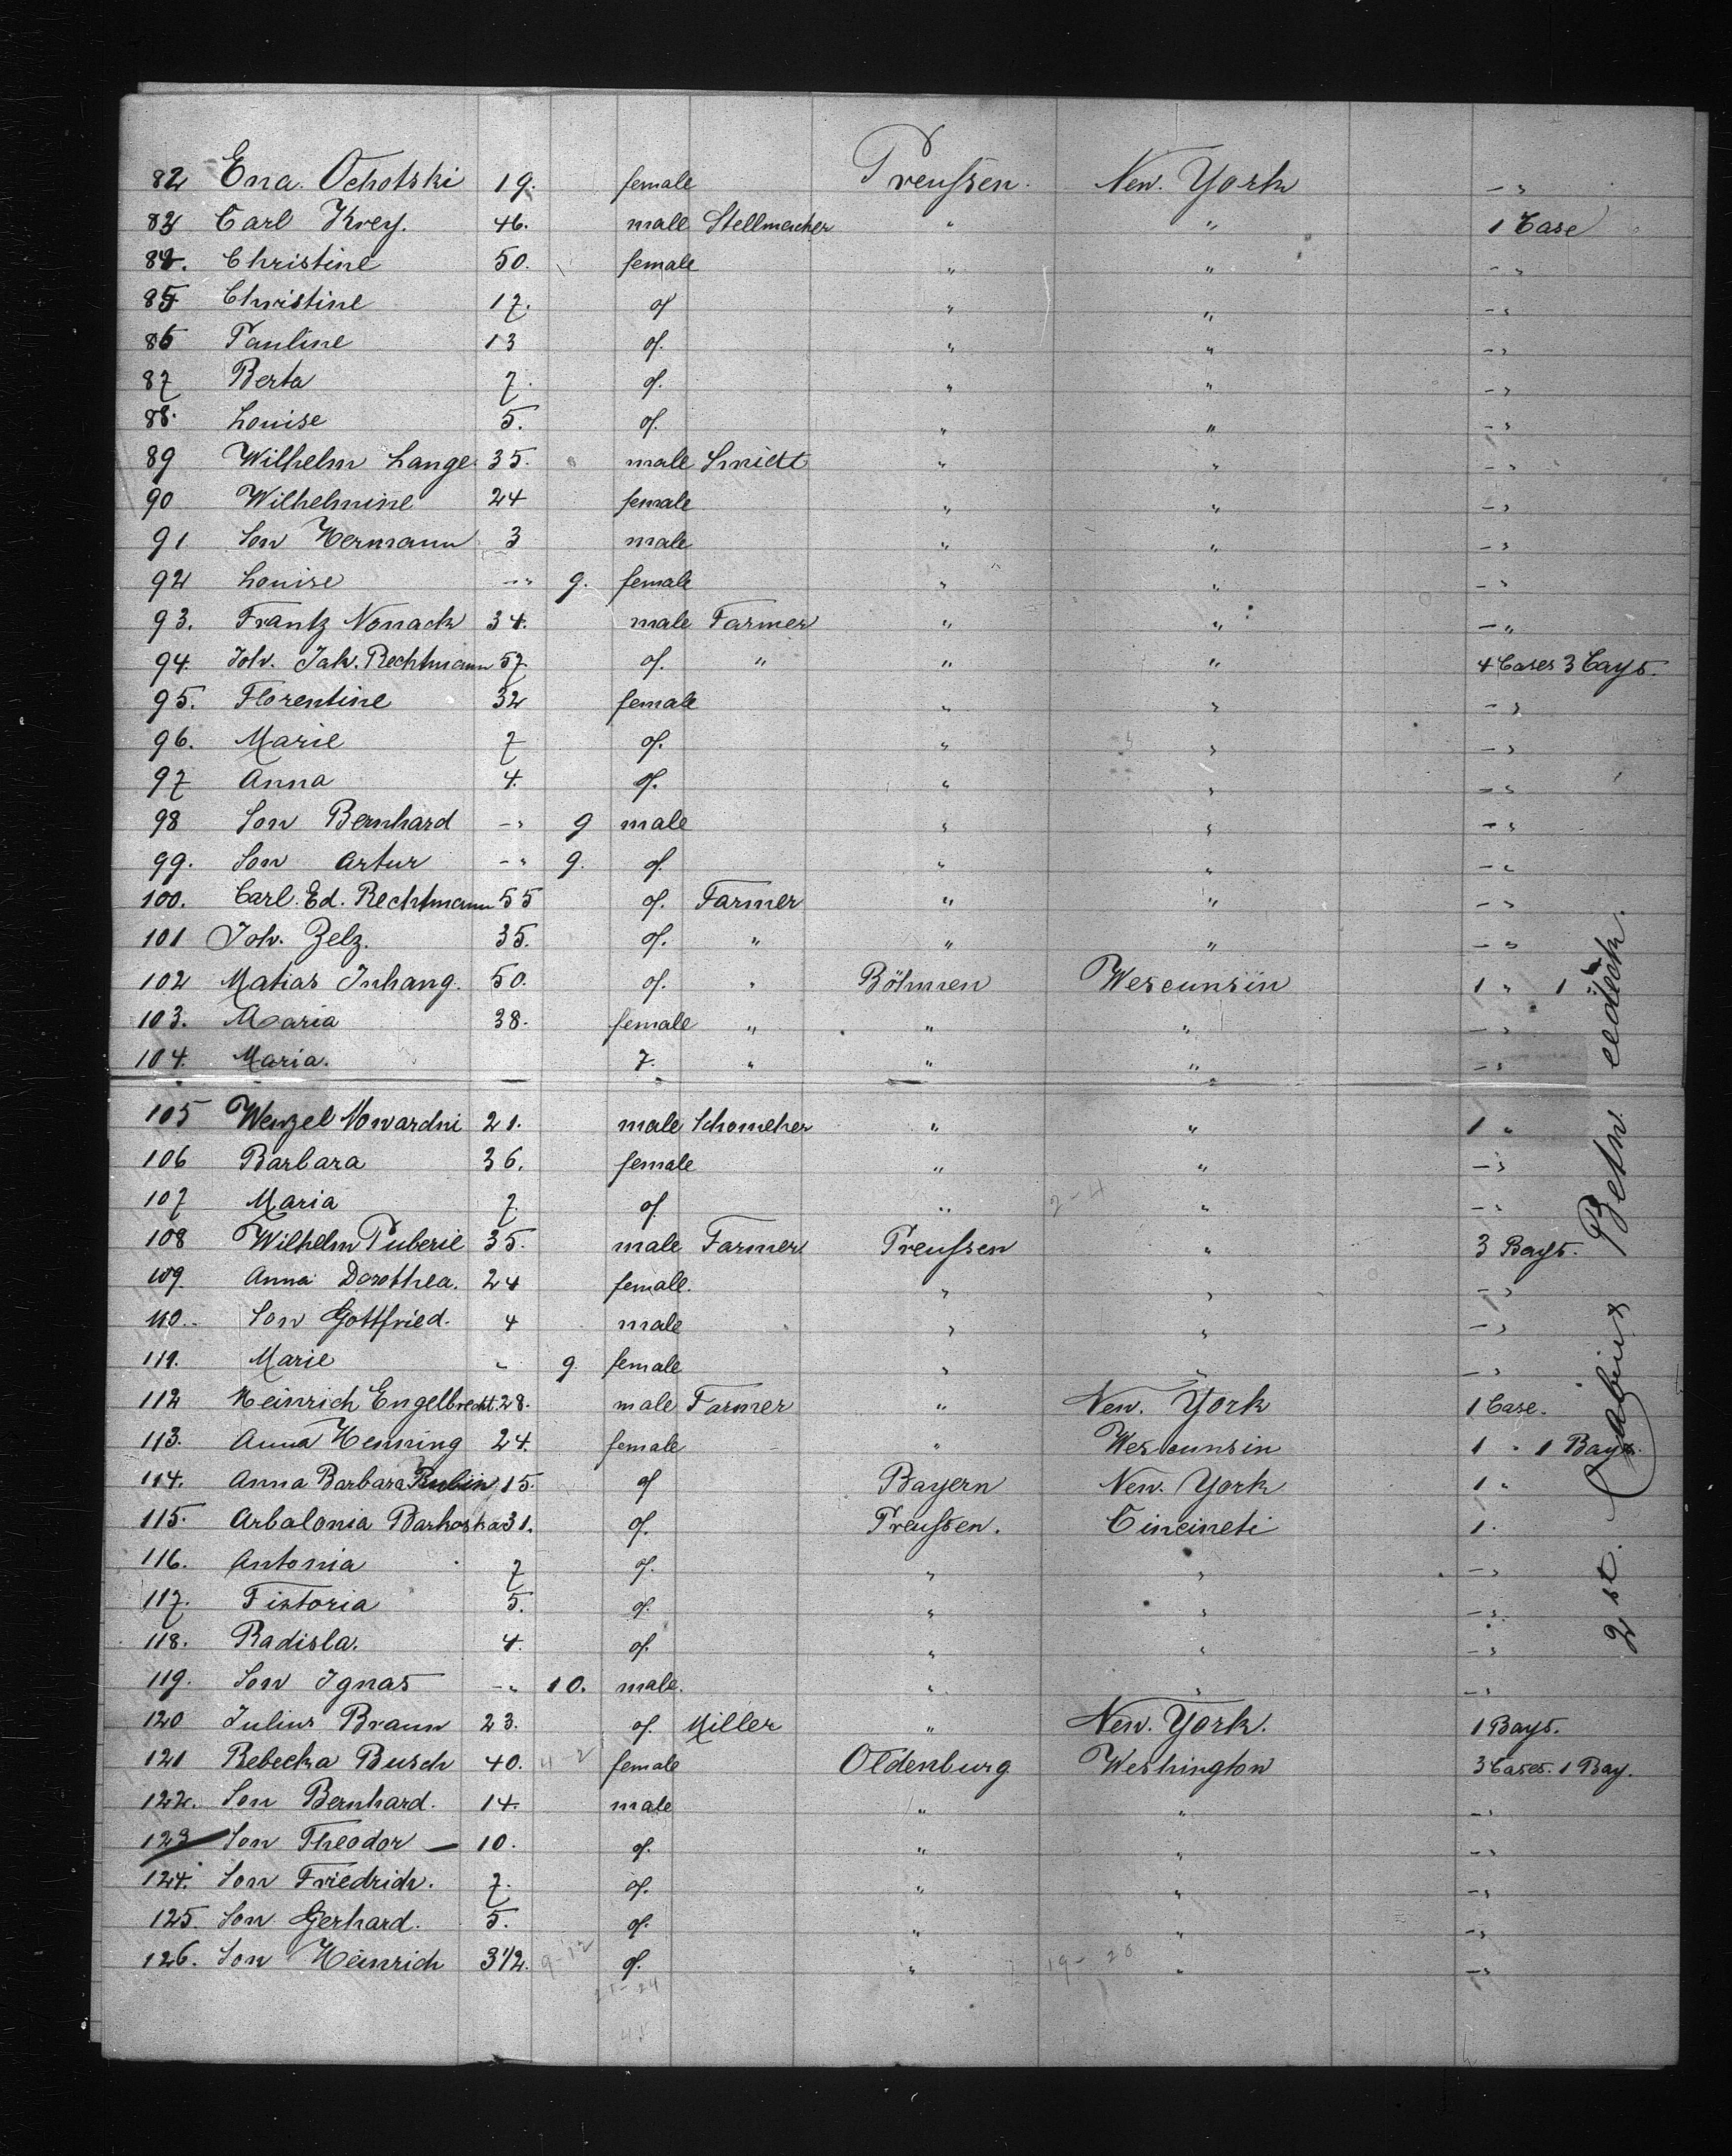 82 Ena. Ochotski 19. female Preußen. New. York -"
83 Carl Krey. 46. male Stellmacher " " 1 Case
84. Christine 50. female " " -"
85 Christine 17. of " " -"
86 Pauline 13 of. " " -"
87 Berta 7. of. " " -"
88. Louise 5. of. " " -"
89 Wilhelm Lange 35. male Smidt " " -"
90 Wilhelmine 24 female " " -"
91 Son Hermann 3 male " " -"
92 Louise -" 9. female " " -"
93. Frantz Nonack 34. male Farmer " " -"
94. Joh. Jak. Rechtmann 57. of. " " " 4 Cases 3 Cays.
95. Florentine 32 female " " -"
96. Marie 7 of. " " -"
97 Anna 4. of. " " -"
98 Son Bernhard -" 9 male " " -"
99. Son Artur -" 9. of. " " -"
100. Carl. Ed. Rechtmann 55 of. Farmer " " -"
101 Joh. Zelz. 35. of. " " " -"
102 Matias Inhang. 50. of. " Böhmen Wescunsin 1 " 1 "
103. Maria 38. female " " " -"
104. Maria. 7. " " " -"
105 Wenzel Nowardni 21. male Schomeher " " 1 "
106 Barbara 36. female " " -"
107 Maria 7. of. " 2-4 " -"
108 Wilhelm Puberie 35. male Farmer Preußen " 3 Bays.
109. Anna Dorothea. 24 female. " " -"
110. Son Gottfried. 4 male " " -"
111. Marie " 9. female " " -"
112 Heinrich Engelbrecht. 28. male Farmer " New. York 1 Case.
113. Anna Henning 24. female " Wescunsin 1 " 1 Bays.
114. Anna Barbara Rubin 15. of Bayern New. York 1 "
115. Arbalonia Barkoska 31. of. Preußen. Cincineti 1.
116. Antonia 7 of. " " -"
117. Fiktoria 5. of. " " -"
118. Radisla. 4. of. " " -"
119. Son Ignas -" 10. male. " " -"
120 Julius Braun 23. of. Miller " New. York. 1 Bays.
121 Rebecka Busch 40. 4-2 female Oldenburg Weshington 3 Cases. 1 Bay.
122. Son Bernhard. 14. male " " -"
123 Son Theodor — 10. of. " " -"
124. Son Friedrich. 7. of. " " -"
125. Son Gerhard. 5. of. " " -"
126. Son Heinrich 3 1/2. 9-12 of. " 19-20 " -"
21-24
2 st. Cabine Betw.